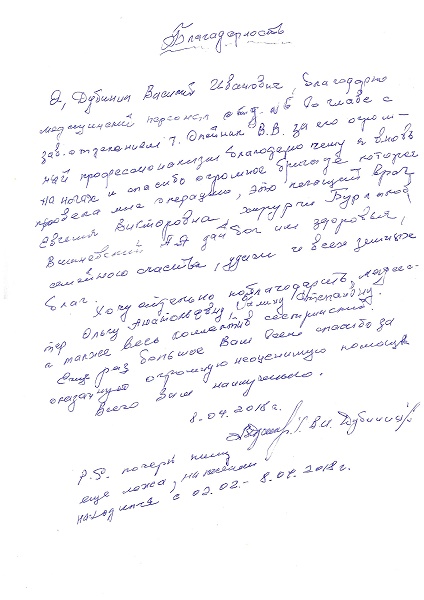 Благодарность
Я, Дубинин Василий Иванович, благодарю
медицинский персонал отд. №6 во главе с
зав. отделением т. Олейник В.В. за его огром-
ный профессионализм благодаря чему я вновь
на ногах и спасибо огромное бригаде которая
провела мне операцию, это лечащий врач
Евгения Викторовна, хирурги
дай бог им здоровья,
семейного счастья, удачи и всех земных
благ.
Хочу отдельно поблагодарить медсес-
тёр Ольгу Анатольевну, Галину Степановну
а также весь коллектив сестринский.
Еще раз большое Вам всем спасибо за
оказанную огромную неоценимую помощь
Всего Вам наилучшего.
8.04.2018 г.
В.И. Дубинин
P.S. почерк пишу
еще лёжа, на лечении
находился с 02.02 - 8.04.2018 г.